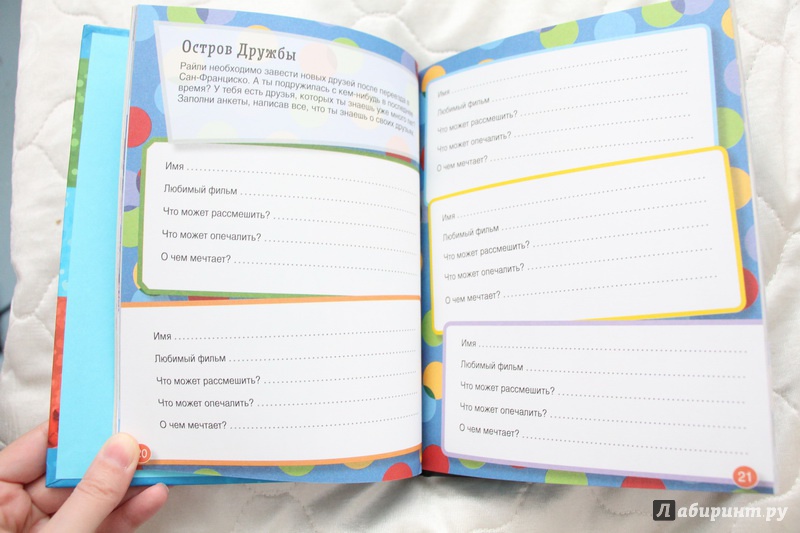 Остров Дружбы
Райли необходимо завести новых друзей после переезда в
Сан-Франциско. А ты подружилась с кем-нибудь в последнее
время? У тебя есть друзья, которых ты знаешь уже много лет?
Заполни анкеты, написав все, что ты знаешь о своих друзьях.
Имя
Любимый фильм
Что может рассмешить?
Что может опечалить?
О чем мечтает?
Имя
Любимый фильм
Что может рассмешить?
Что может опечалить?
О чем мечтает?
20
Имя
Любимый фильм
Что может рассмешить?
Что может опечалить?
О чем мечтает?
Имя
Любимый фильм
Что может рассмешить?
Что может опечалить?
О чем мечтает?
Имя
Любимый фильм
Что может рассмешить?
Что может опечалить?
О чем мечтает?
21
Лабиринт.ру